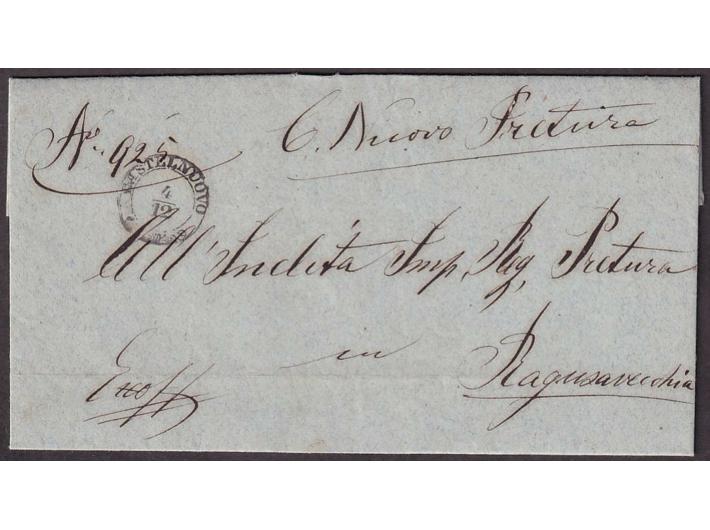 No. 925 C. Nuovo Pretura
CASTELNUOVO
4
12
All' Inclita Imp. Reg. Pretura
Exoff in Ragusavecchia